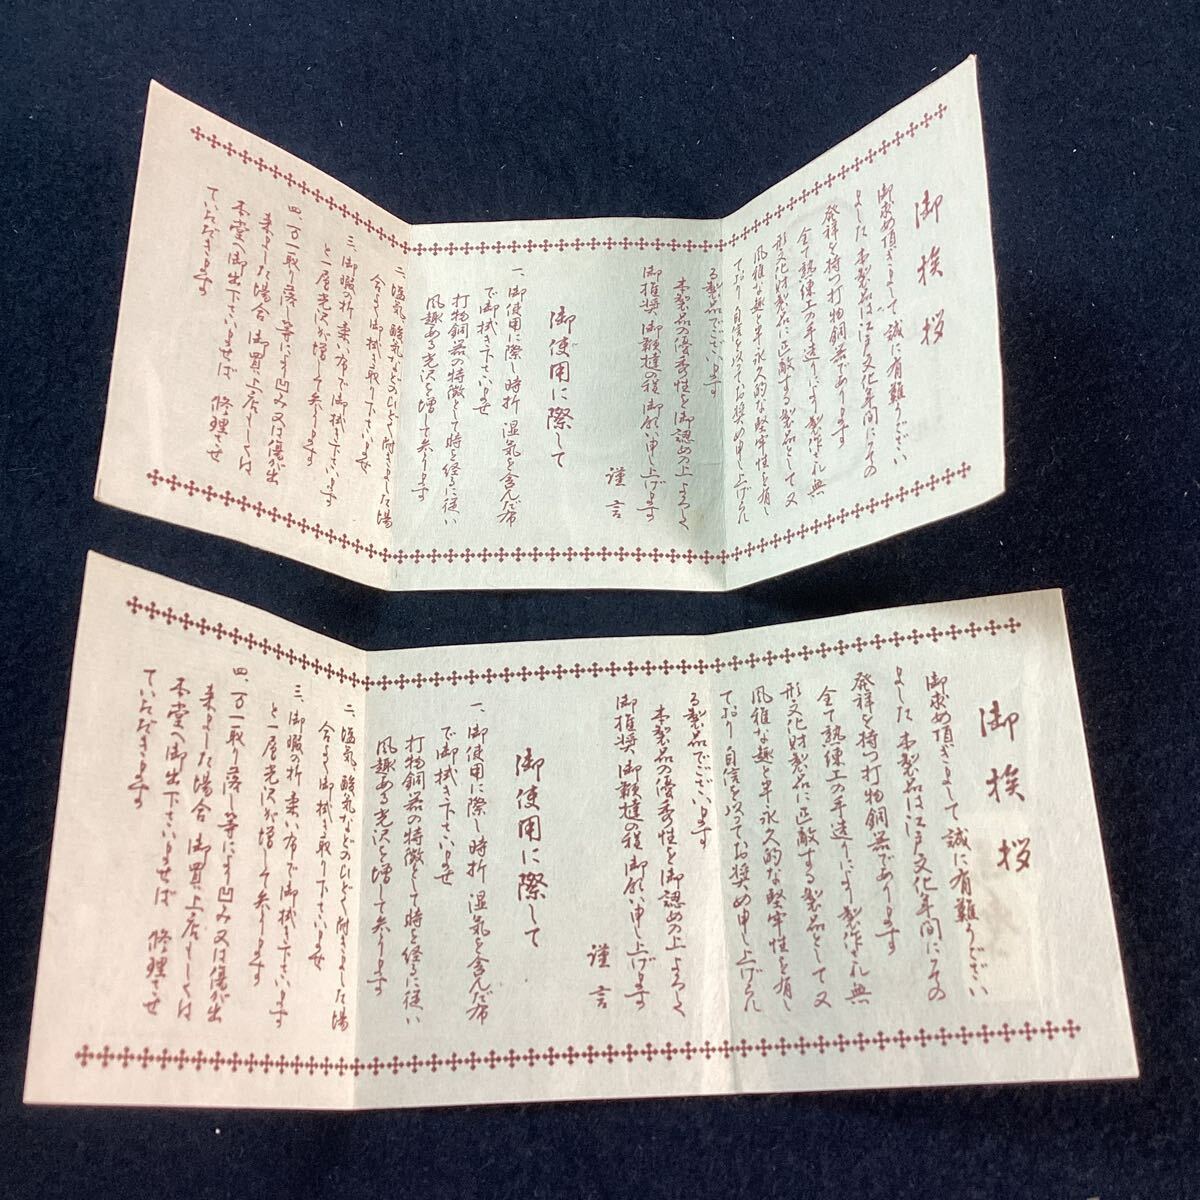 御挨拶
御求め頂きまして誠に有難うござい
ました 本製品は江戸文化年間にその
発祥を持つ打物銅器であります
全て熟練工の手造りにより製作され無
形文化財製品に匹敵する製品として又
風雅な趣と半永久的な堅牢性を有し
ており自信を以つてお奨め申し上げられ
る製品でございます
本製品の優秀性を御認めの上よろしく
御推奨 御鞭撻の程御願い申し上げます
謹言
御使用に際して
一、御使用に際し時折 湿気を含んだ布
で御拭き下さいませ
打物銅器の特徴として時を経るに従い
風趣ある光沢を増して参ります
二、塩気、酸気などのひどく附きました場
合はよく御拭き取り下さいませ
三、御暇の折 柔い布で御拭き下さいます
と一層光沢が増して参ります
四、万一取り落し等により凹み又は傷が出
来ました場合 御買上店もしくは
本堂へ御出下さいませば 修理させ
ていただきます
御挨拶
御求め頂きまして誠に有難うござい
ました 本製品は江戸文化年間にその
発祥を持つ打物銅器であります
全て熟練工の手造りにより製作され無
形文化財製品に匹敵する製品として又
風雅な趣と半永久的な堅牢性を有し
ており自信を以つてお奨め申し上げられ
る製品でございます
本製品の優秀性を御認めの上よろしく
御推奨 御鞭撻の程御願い申し上げます
謹言
御使用に際して
一、御使用に際し時折 湿気を含んだ布
で御拭き下さいませ
打物銅器の特徴として時を経るに従い
風趣ある光沢を増して参ります
二、塩気、酸気などのひどく附きました場
合はよく御拭き取り下さいませ
三、御暇の折 柔い布で御拭き下さいます
と一層光沢が増して参ります
四、万一取り落し等により凹み又は傷が出
来ました場合 御買上店もしくは
本堂へ御出下さいませば 修理させ
ていただきます